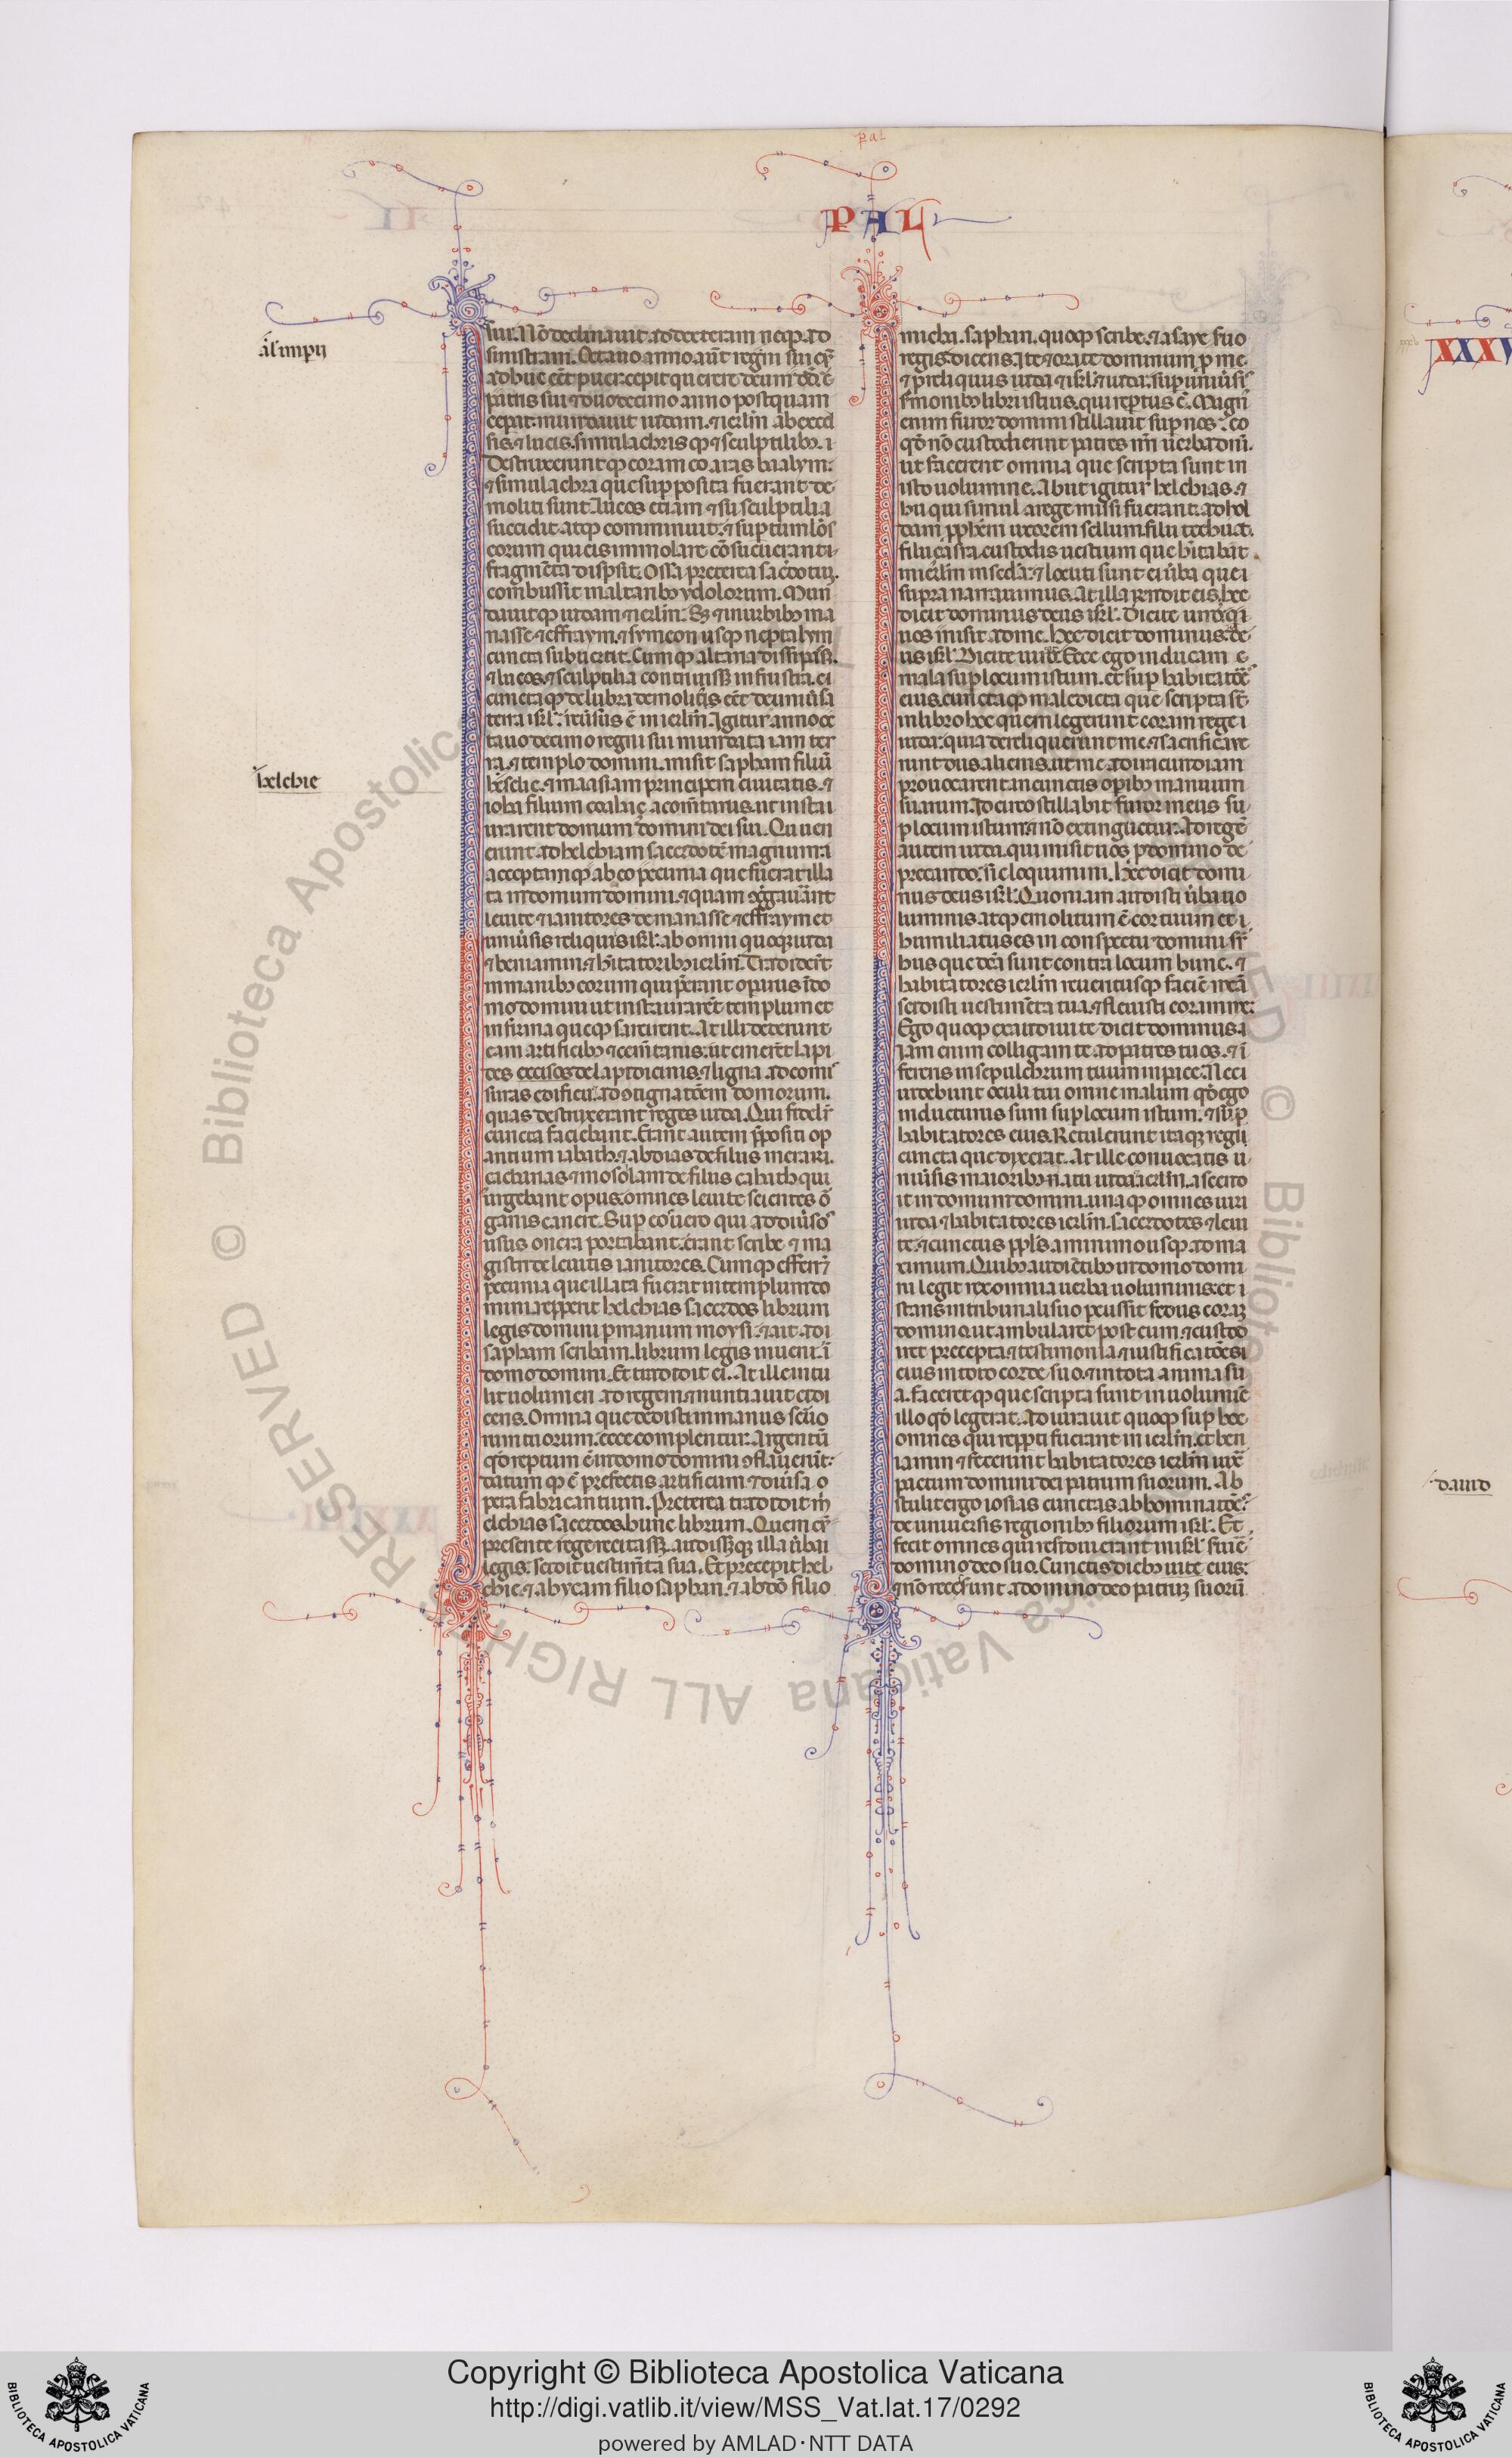 pal
PAL
sui. Nō declinauit ad dexteram neqꝫ ad
sinistram. Octauo anno aūt regni sui cū
adhuc eēt puer. cepit querere deum dd̄ ē
patris sui ⁊ duodecimo anno postquam
ceperat. mundauit iudam. ⁊ ierlm̄ ab excel
sis. ⁊ lucis. simulachris qꝫ ⁊ sculptilibꝫ. i
Destruxerunt qꝫ coram eo aras baalym.
⁊ simulachra que sup posita fuerant de
moliti sunt. Lucos etiam ⁊ su sculptilia
succidit atqꝫ comminuit. ⁊ sup tumlōs
eorum qui eis immolare cōsueuerant.
fragmēta dispsit. Ossa preterea sac̄dotuꝫ.
combussit in altaribꝫ ydolorum. Mun
dauit qꝫ iudam ⁊ ierlm̄. Sꝫ ⁊ in urbibꝫ ma
nasse ⁊ effraym. ⁊ symeon usqꝫ neptalym
cuncta subuertit. Cum qꝫ altaria dissipass̄.
⁊ lucos. ⁊ sculptilia contriuiss̄ in frustra.
cuncta qꝫ delubra demolitꝰ eēt de uniūsa
terra isrl̄. reūsus ē in ierlm̄. Igitur anno oc
tauo decimo regni sui mundata iam ter
ra. ⁊ templo domini. misit sapham filiū
helchie. ⁊ maasiam principem ciuitatis. ⁊
ioha filium
ut instau
rarent domum domini dei sui. Qui uen
erunt ad helchiam sacerdotē magnum.
acceptam qꝫ ab eo pecunia que fuerat illa
ta in domum domini. ⁊ quam ꝯg̃gauerant
leuite ⁊ ianitores de manasse ⁊ effraym et
uniūsis reliquis isrl̄. ab omni quoqꝫ iuda
⁊ beniamin. ⁊ hītatoribꝫ ierlm̄. Tradiderūt
in manibꝫ eorum qui p̄erant opibus ī do
mo domini ut instaurarēt templum et
infirma queqꝫ sarcirent. At illi dederunt
eam artificibꝫ ⁊ cem̄tariis. ut emerēt lapi
des
de lapidicinis. ⁊ ligna ad comis
suras edificii. ad ꝯtignatōem domorum.
quas destruxerant reges iuda. Qui fidelr̄
cuncta faciebant. Erant autem p̄positi op
antium iahath. ⁊ abdias de filiis merari.
zacharias ⁊ mosolam de filiis cahath. qui
urgebant opus. omnes leuite scientes ō
ganis canere. Sup eos uero qui ad diūsos
usus onera portabant. erant scribe ⁊ ma
gistri de leuitis ianitores. Cum qꝫ efferrēt
pecunia que illata fuerat in templum do
mini. repperit helchias sacerdos librum
legis domini p manum moysi. ⁊ ait ad
sapham scribam. librum legis inueni. ī
domo domini. Et tradidit ei. At ille intu
lit uolumen ad regem. ⁊ nuntiauit ei di
cens. Omnia que dedisti in manus seruo
rum tuorum. ecce complentur. Argentū
qd̄ reptum ē in domo domini ꝯflauerūt.
datum qꝫ ē prefectis artificum ⁊ diūsa o
pera fabricantium. Preterea tradidit m̄
elchias sacerdos. hunc librum. Quem cū
presente rege recitass̄. audiss̄qꝫ illa ūba
legis. scidit uestim̄ta sua. Et precepit hel
chie. ⁊ ahycam filio saphan. ⁊ abdō filio
micha. saphan. quoqꝫ scribe. ⁊ asaye suo
regis dicens. Ite ⁊ orate dominum p me.
⁊ p reliquiis iuda ⁊ isrl̄. sup uniūsis
s̄monibꝫ libri istius. qui reptus ē. Magn̄
enim furor domini stillauit sup nos. eo
qd̄ nō custodierunt patres nr̄i uerba dn̄i.
ut facerent omnia que scripta sunt in
isto uolumine. Abiit igitur helchias. ⁊
hii qui simul a rege missi fuerant. ad hol
dam pph̄em uxorem sellum. filii techuath.
filii casra. custodis uestium que hītabat
in ierlm̄ in sed̄a. ⁊ locuti sunt ei ūba que
supra narrauimus. At illa rn̄dit eis. hec
dicit dominus deus isrl̄. Dicite uiro qͥ
uos misit ad me. Hec dicit dominus. de
us isrl̄. Ecce ego inducam
mala sup locum istum. et sup habitatōes
eius. cuncta qꝫ maledicta que scripta st̄
in libro hoc quem legerunt coram rege
iuda. quia dereliquerunt me. ⁊ sacrificaue
runt diis alienis. ut me ad iracundiam
prouocarent in cunctis opibꝫ manuum
suarum. Idcirco stillabit furor meus su
p locum istum ⁊ nō extinguetur. Ad regē
autem iuda. qui misit uos p domino de
precando. sic loquimini. Hec dicit domi
nus deus isrl̄. Quoniam audisti ūba uo
luminis atqꝫ emolitum ē cor tuum et
humiliatus es in conspectu domini sr̄
hiis que dc̄a sunt contra locum hunc. ⁊
habitatores ierlm̄ reueritusqꝫ faciē meā
scidisti uestimēta tua. ⁊ fleuisti coram me.
Ego quoqꝫ exaudiui te dicit dominus.
Iam enim colligam te ad patres tuos. ⁊ ī
fereris in sepulchrum tuum in pace. Nec
uidebunt oculi tui omne malum qd̄ ego
inducturus sum sup locum istum. ⁊ sup
habitatores eius. Retulerunt itaqꝫ regi
cuncta que dixerat. At ille conuocatis u
niūsis maioribꝫ natu iuda ⁊ ierlm̄. ascen
it in domum domini. unaqꝫ omnes uiri
iuda ⁊ habitatores ierlm̄. sacerdotes ⁊ leui
te. ⁊ cunctus ppls̄ a minimo usqꝫ ad ma
ximum. Quibꝫ audiētibꝫ in domo domi
ni legit rex omnia uerba uoluminis. et
stans in tribunali suo pcussit fedus coraꝫ
domino ut ambularet post eum ⁊ custodi
ret precepta ⁊ testimonia ⁊ iustificatōes
eius in toto corde suo. ⁊ in tota anima su
a. faceret qꝫ que scripta sunt in uolumīe
illo qd̄ legerat. Adiurauit quoqꝫ sup hoc
omnes qui reppti fuerant in ierlm̄. et ben
iamin ⁊ fecerunt habitatores ierlm̄ iuxᷓ
pactum domini dei patrum suorum. Ab
stulit ergo iosias cunctas abhominatōes.
de uniuersis regionibꝫ filiorum isrl̄. Et
fecit omnes qui residui erant in isrl̄ s̄uire
domino deo suo. Cunctis diebꝫ uite eius.
nō recesserunt a domino deo patruꝫ suorū
al̄ impii
helchie
XXXV
dauid
Copyright © Biblioteca Apostolica Vaticana
http://digi.vatlib.it/view/MSS_Vat.lat.17/0292
powered by AMLAD·NTT DATA
BIBLIOTECA APOSTOLICA VATICANA
BIBLIOTECA APOSTOLICA VATICANA